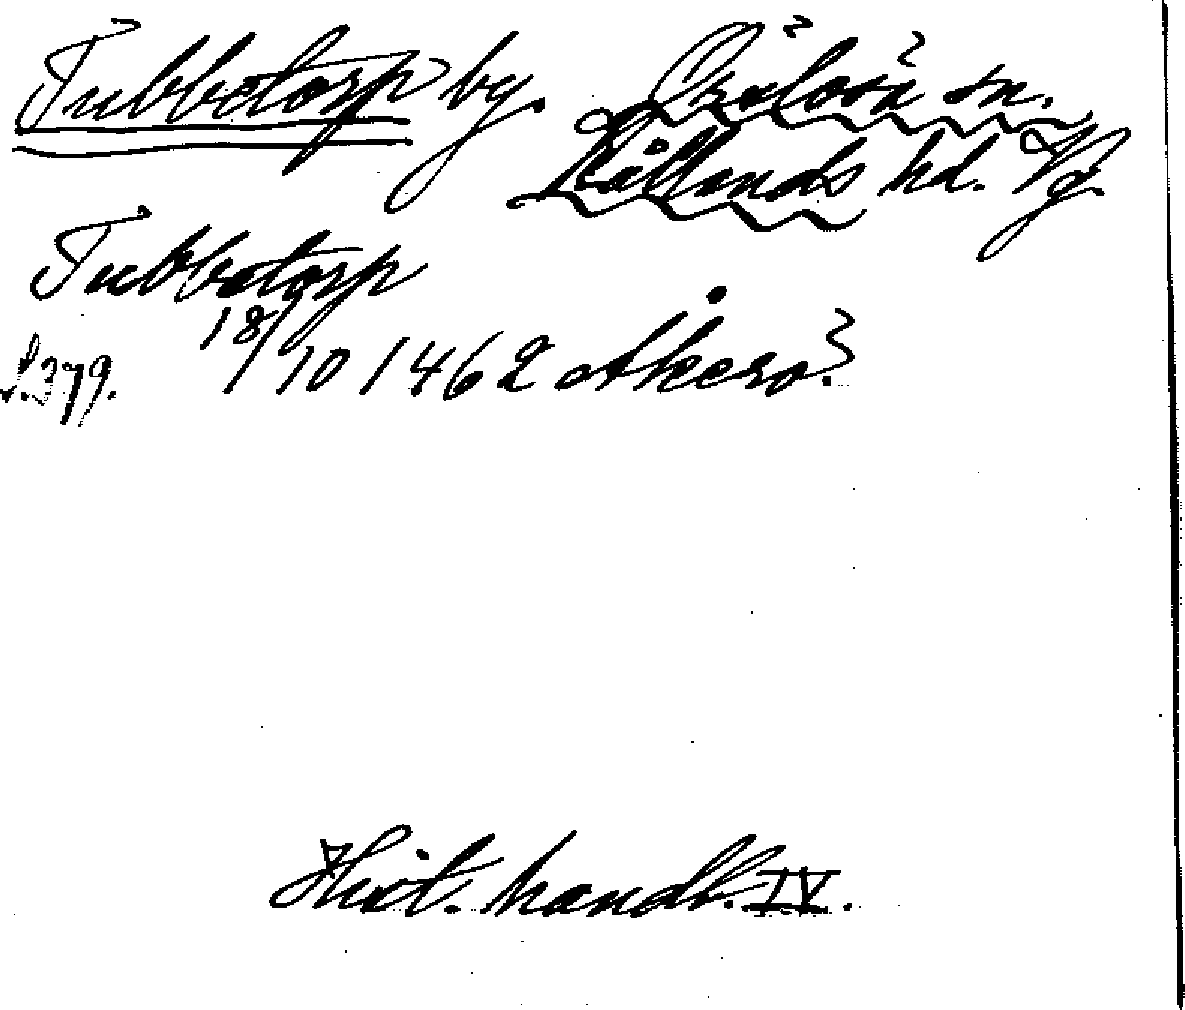 Tubbetorp by. Örslösa sn.
Kållands hd. Vg.
Tubbetorp
s.379. 18/10 1462 Åkerö.
Hist. handl. IV.